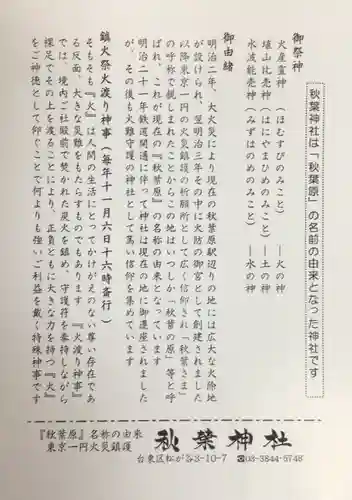 秋葉神社は「秋葉原」の名前の由来となった神社です
御祭神
火産霊神 （ほむすびのみこと） ―火の神
埴山比売神 （はにやまひめのみこと） ―土の神
水波能売神 （みずはのめのみこと） ―水の神
御由緒
明治二年、大火災により現在の秋葉原駅辺りの地には広大な火除地
が設けられ、翌明治三年その中に火防の御宮として創建されました
以降東京一円の火災鎮護の祈願所として広く信仰され「秋葉さま」
の呼称で親しまれたことからこの地はいつしか「秋葉の原」等と呼
ばれ、これが現在の『秋葉原』の名称の由来となっています
明治二十一年鉄道開通に伴って神社は現在の地に御遷座されました
が、その後も火難守護の神社として篤い信仰を集めています
鎮火祭火渡り神事（毎年十一月六日十六時斎行）
そもそも『火』は人間の生活にとってかけがえのない尊い存在であ
る反面、大きな災難をもたらすものでもあります 『火渡り神事』
では、境内ご社殿前で焚かれた炭火を鎮め、守護符を奉持しながら
裸足でその上を渡ることにより、正負ともに大きな力を持つ『火』
をご神徳として仰ぐことで何よりも強いご利益を戴く特殊神事です
『秋葉原』名称の由来
東京一円火災鎮護
秋葉神社
台東区松が谷3-10-7 ☎03-3844-5748